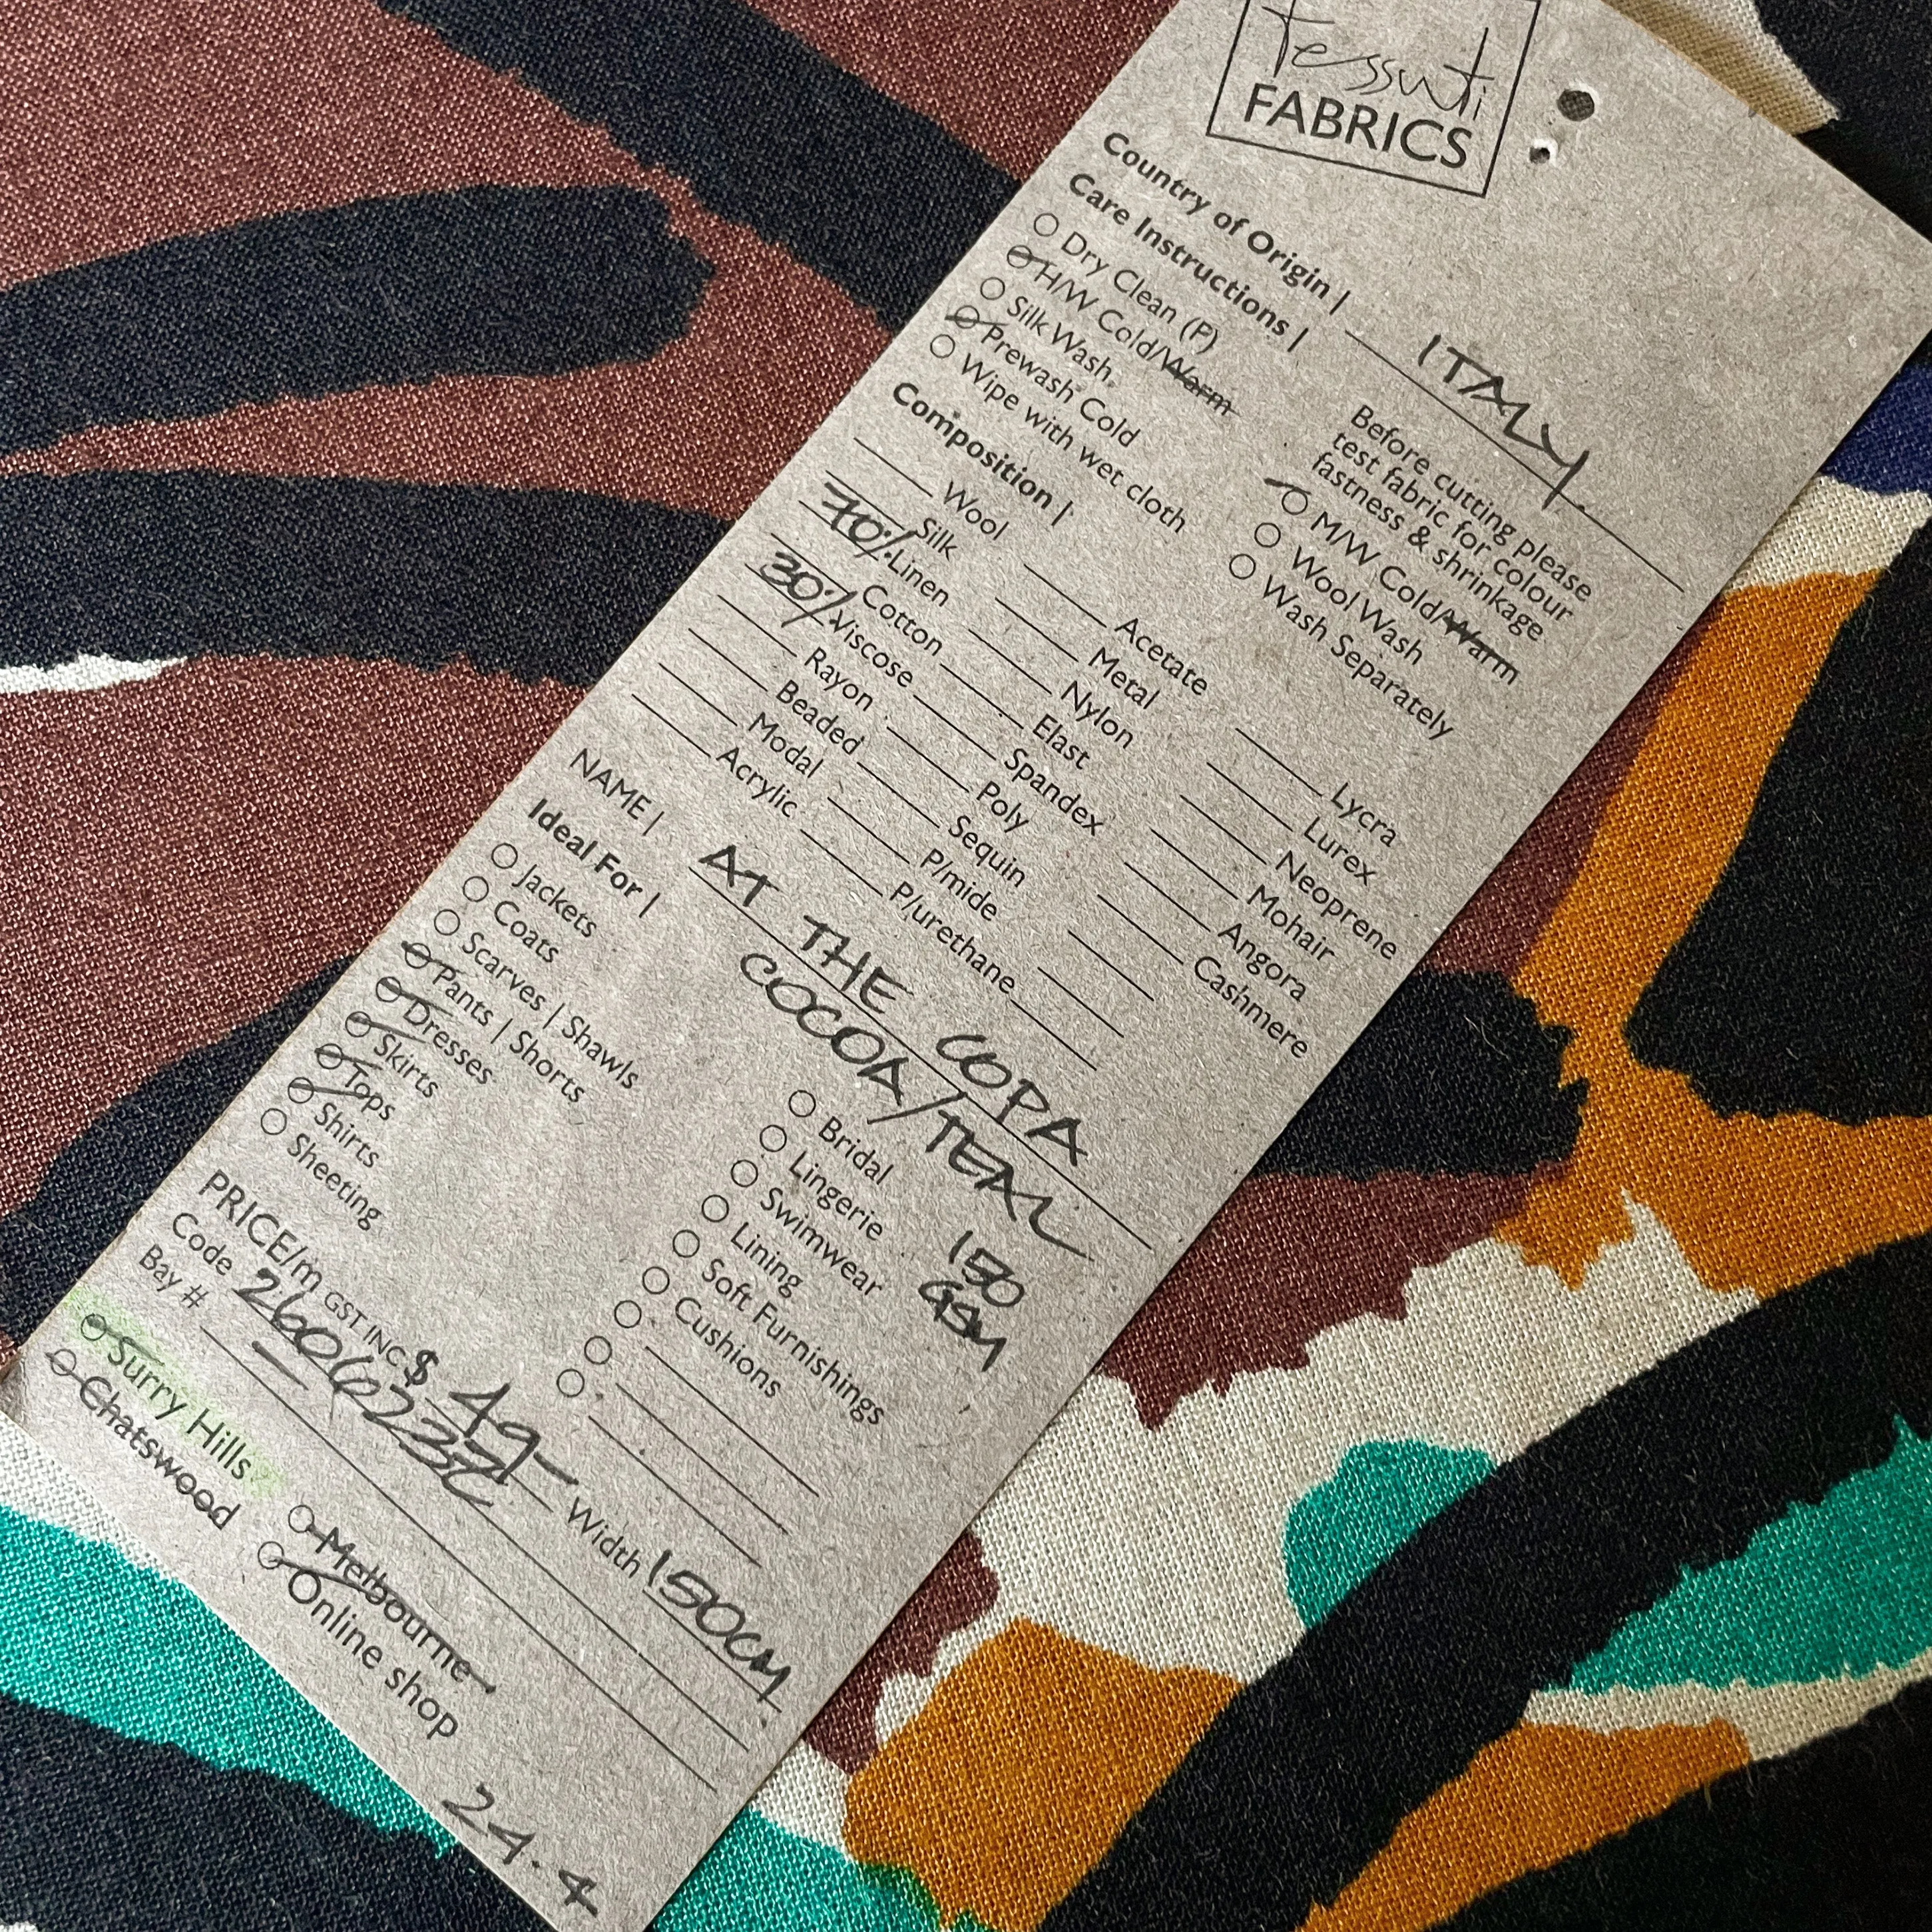 Tessuti
FABRICS
Country of Origin | ITALY
Care Instructions |
Before cutting please
test fabric for colour
fastness & shrinkage
Dry Clean (P)
H/W Cold/Warm
Silk Wash
Prewash Cold
Wipe with wet cloth
M/W Cold/Warm
Wool Wash
Wash Separately
Composition |
Wool
Silk
70% Linen
Cotton
30% Viscose
Rayon
Beaded
Modal
Acrylic
Acetate
Metal
Nylon
Elast
Spandex
Poly
Sequin
P/mide
P/urethane
Lycra
Lurex
Neoprene
Mohair
Angora
Cashmere
NAME | AT THE COPA
COCOA/TEAL
Ideal For |
Jackets
Coats
Scarves | Shawls
Pants | Shorts
Dresses
Skirts
Tops
Shirts
Sheeting
Bridal
Lingerie
Swimwear
Lining
Soft Furnishings
Cushions
150
GSM
PRICE/m GST INC $ 49-
Code Width 150CM
Bay #
Surry Hills
Chatswood
Melbourne
Online shop
24.4